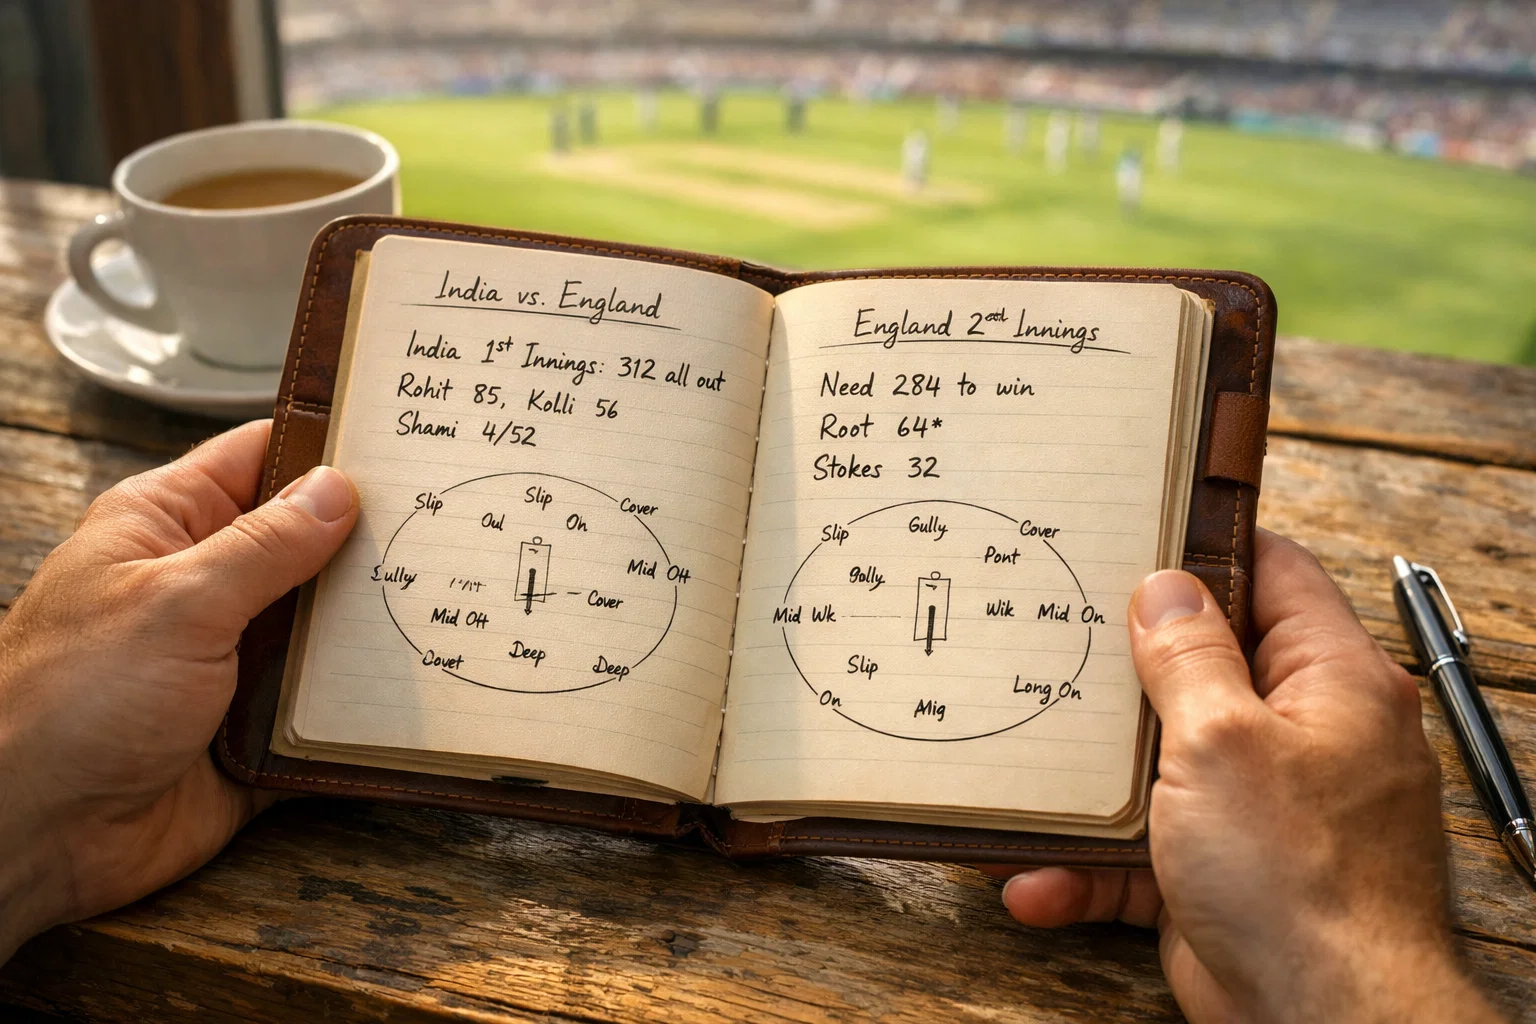 India vs. England
India 1st Innings: 312 all out
Rohit 85, Kohli 56
Shami 4/52
Slip Slip Cover
Oul On
Mid Off
Cover
Mid Off
Covet Deep Deep
England 2nd Innings
Need 284 to win
Root 64*
Stokes 32
Slip Gully Cover
Pont
golly
Mid Wk Wik Mid On
Slip
Long On
On